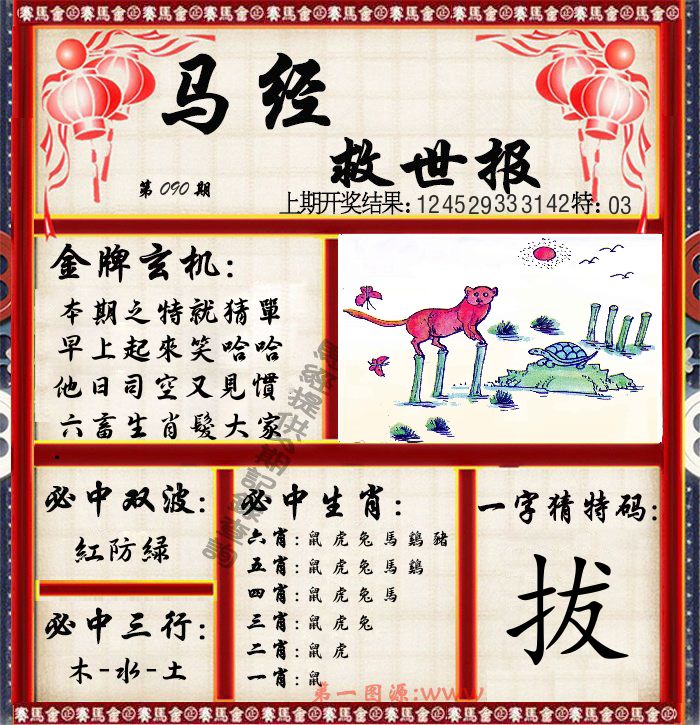 馬經
救世报
第090期
上期开奖结果:124529333142特:03
金牌玄机:
本期之特就猜單
早上起來笑哈哈
他日司空又見慣
六畜生肖髮大家
必中双波:
紅防緑
必中三行:
木-水-土
必中生肖:
六肖:鼠虎兔馬鷄豬
五肖:鼠虎兔馬鷄
四肖:鼠虎兔馬
三肖:鼠虎兔
二肖:鼠虎
一肖:鼠
一字猜特码:
拔
第一图源:www